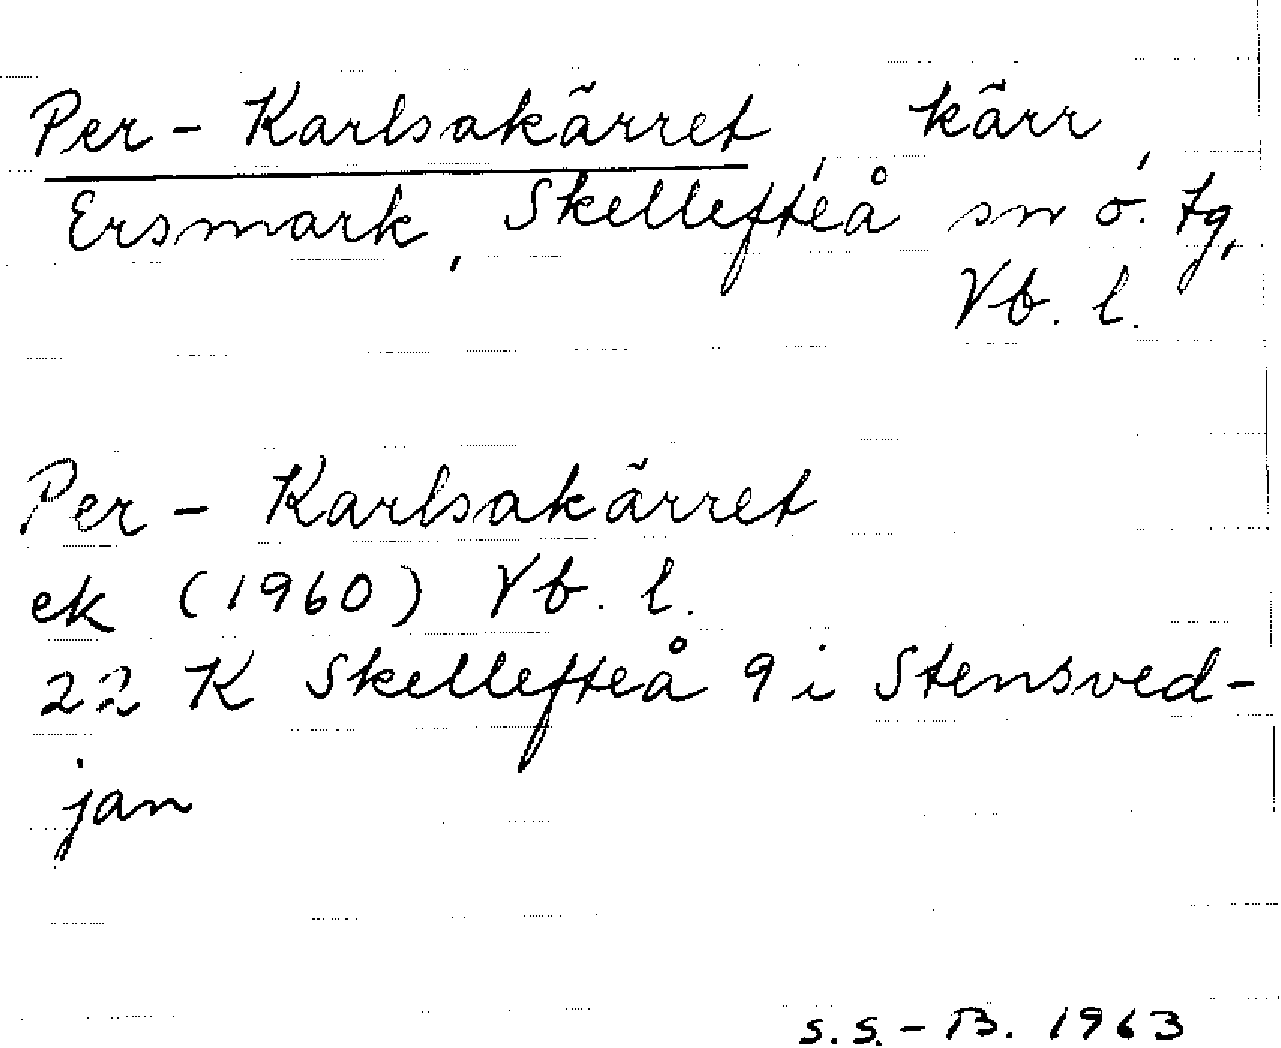 Per-Karlsakärret, kärr,
Ersmark, Skellefteå sn o. tg,
Vb. l.
Per-Karlsakärret
ek (1960) Vb. l.
22 K Skellefteå 9 i Stensved-
jan
S.S.-B. 1963